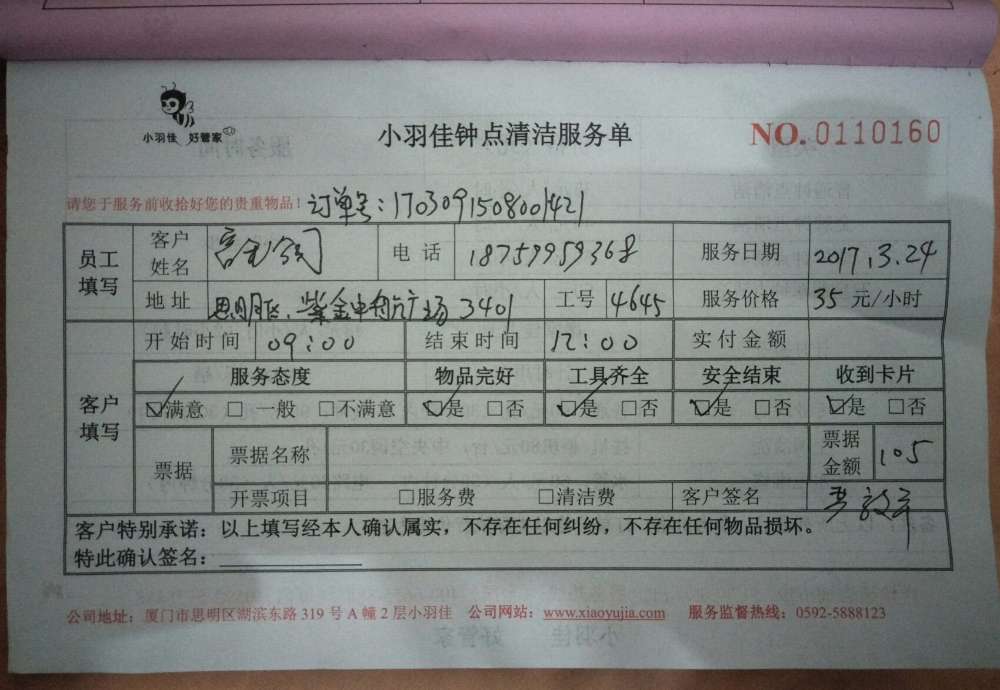 小羽佳 好管家
小羽佳钟点清洁服务单
NO.0110160
请您于服务前收拾好您的贵重物品！ 订单号：1703091508001421
员工填写 客户姓名 电话 18759959368 服务日期 2017.3.24
地址 思明区、紫金中航广场 3401 工号 4645 服务价格 35 元/小时
客户填写 开始时间 09:00 结束时间 12:00 实付金额
服务态度 物品完好 工具齐全 安全结束 收到卡片
☑满意 □一般 □不满意 ☑是 □否 ☑是 □否 ☑是 □否 ☑是 □否
票据 票据名称 票据金额 105
开票项目 □服务费 □清洁费 客户签名
客户特别承诺：以上填写经本人确认属实，不存在任何纠纷，不存在任何物品损坏。
特此确认签名：
公司地址：厦门市思明区湖滨东路 319 号 A 幢 2 层小羽佳 公司网站：www.xiaoyujia.com 服务监督热线：0592-5888123